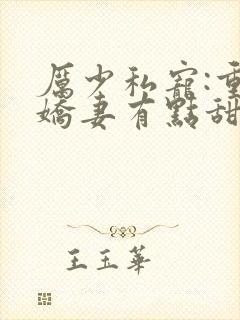 厲少私寵:重
嬌妻有點甜
王玉華